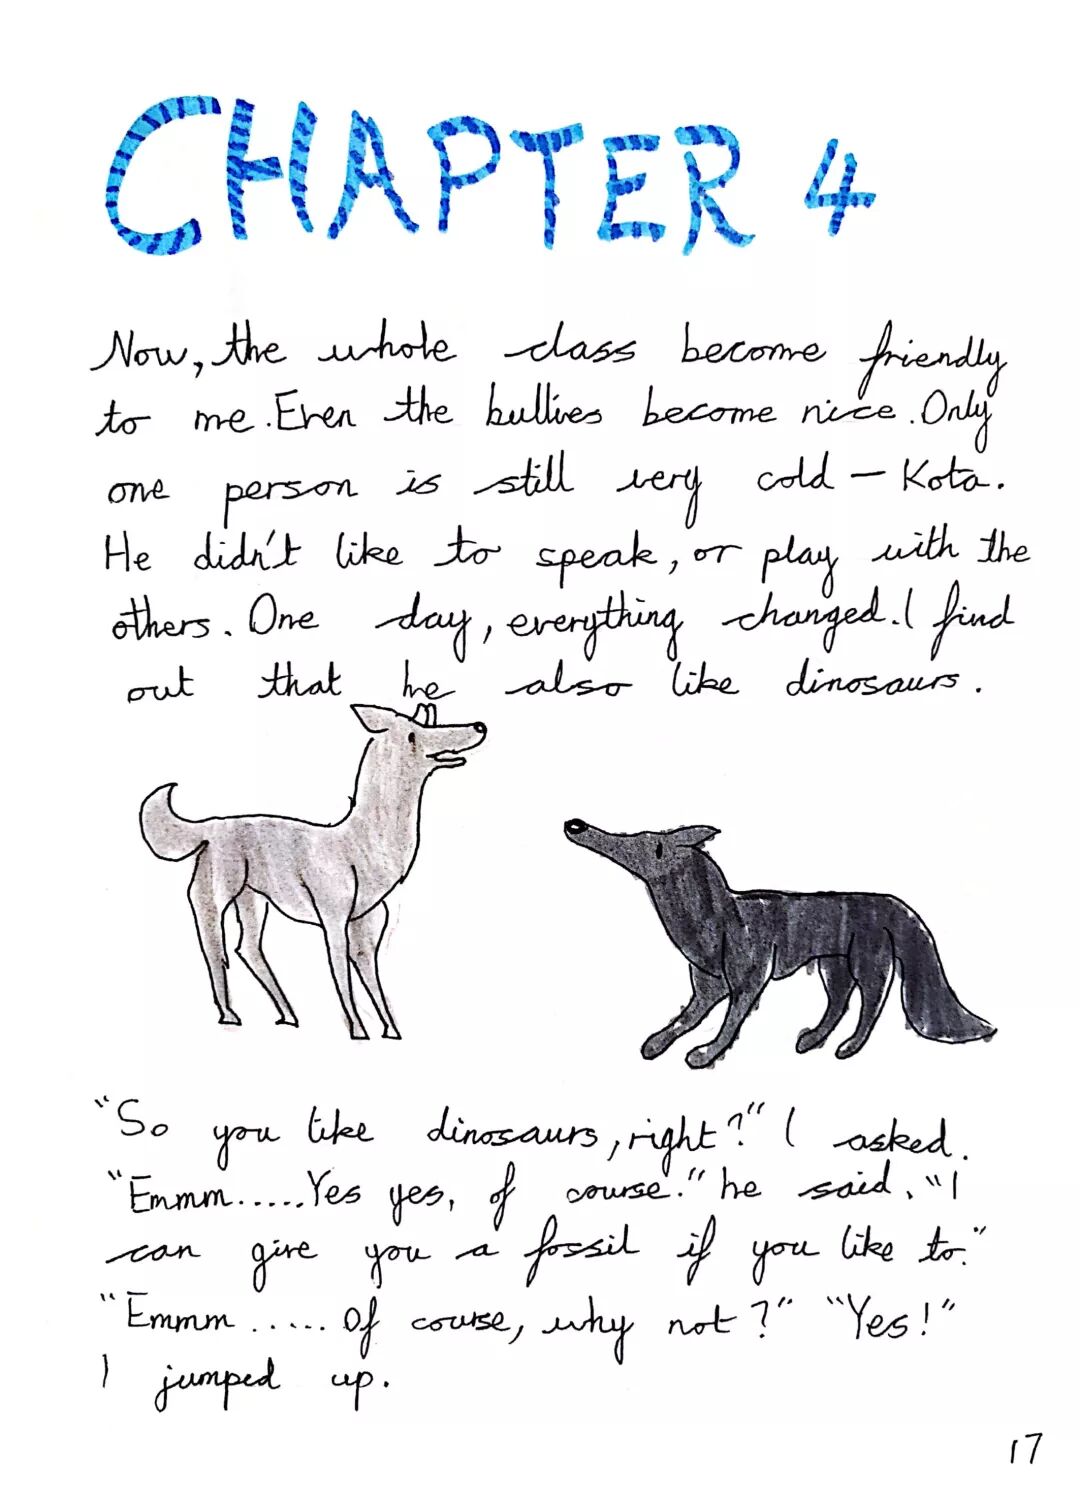 CHAPTER 4
Now, the whole class become friendly
to me. Even the bullies become nice. Only
one person is still very cold — Kota.
He didn't like to speak, or play with the
others. One day, everything changed. I find
out that he also like dinosaurs.
"So you like dinosaurs, right?" I asked.
"Emmm.....Yes yes, of course." he said. "I
can give you a fossil if you like to."
"Emmm ..... Of course, why not?" "Yes!"
I jumped up.
17